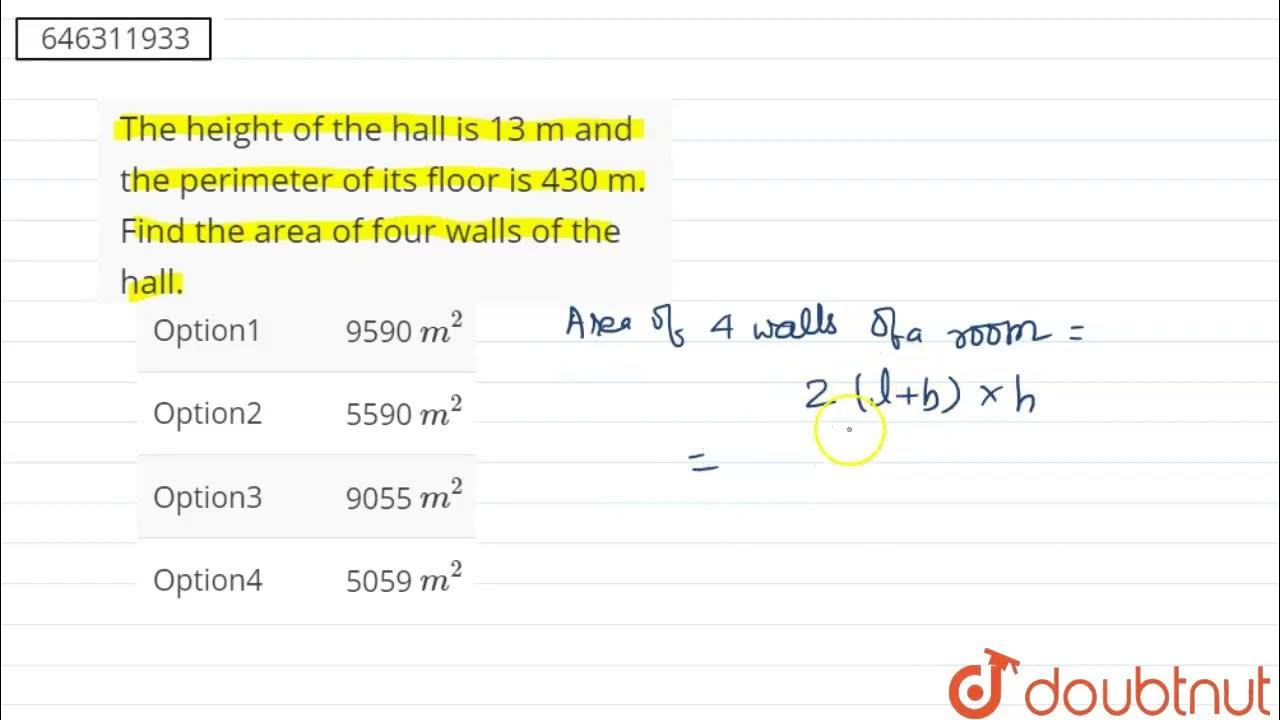 646311933
The height of the hall is 13 m and
the perimeter of its floor is 430 m.
Find the area of four walls of the
hall.
Option1 9590 m²
Option2 5590 m²
Option3 9055 m²
Option4 5059 m²
Area of 4 walls of a room =
2 (l+b) × h
=
doubtnut